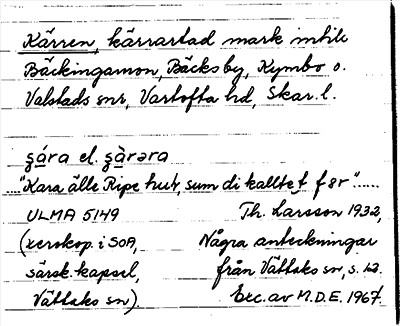 Kärren, kärrartad mark intill
Bäckingamon, Bäcksby, Kymbo o.
Valstads snr, Vartofta hd, Skar. l.
şára el. şàrara
....."Kara älle Ripe hut, sum di kallte f för".....
ULMA 5149 Th. Larsson 1932,
(xerokop. i SOA, Några anteckningar
särsk. kapsel, från Vättaks sn, s. 12.
Vättaks sn). Exc. av M.D.E. 1967.